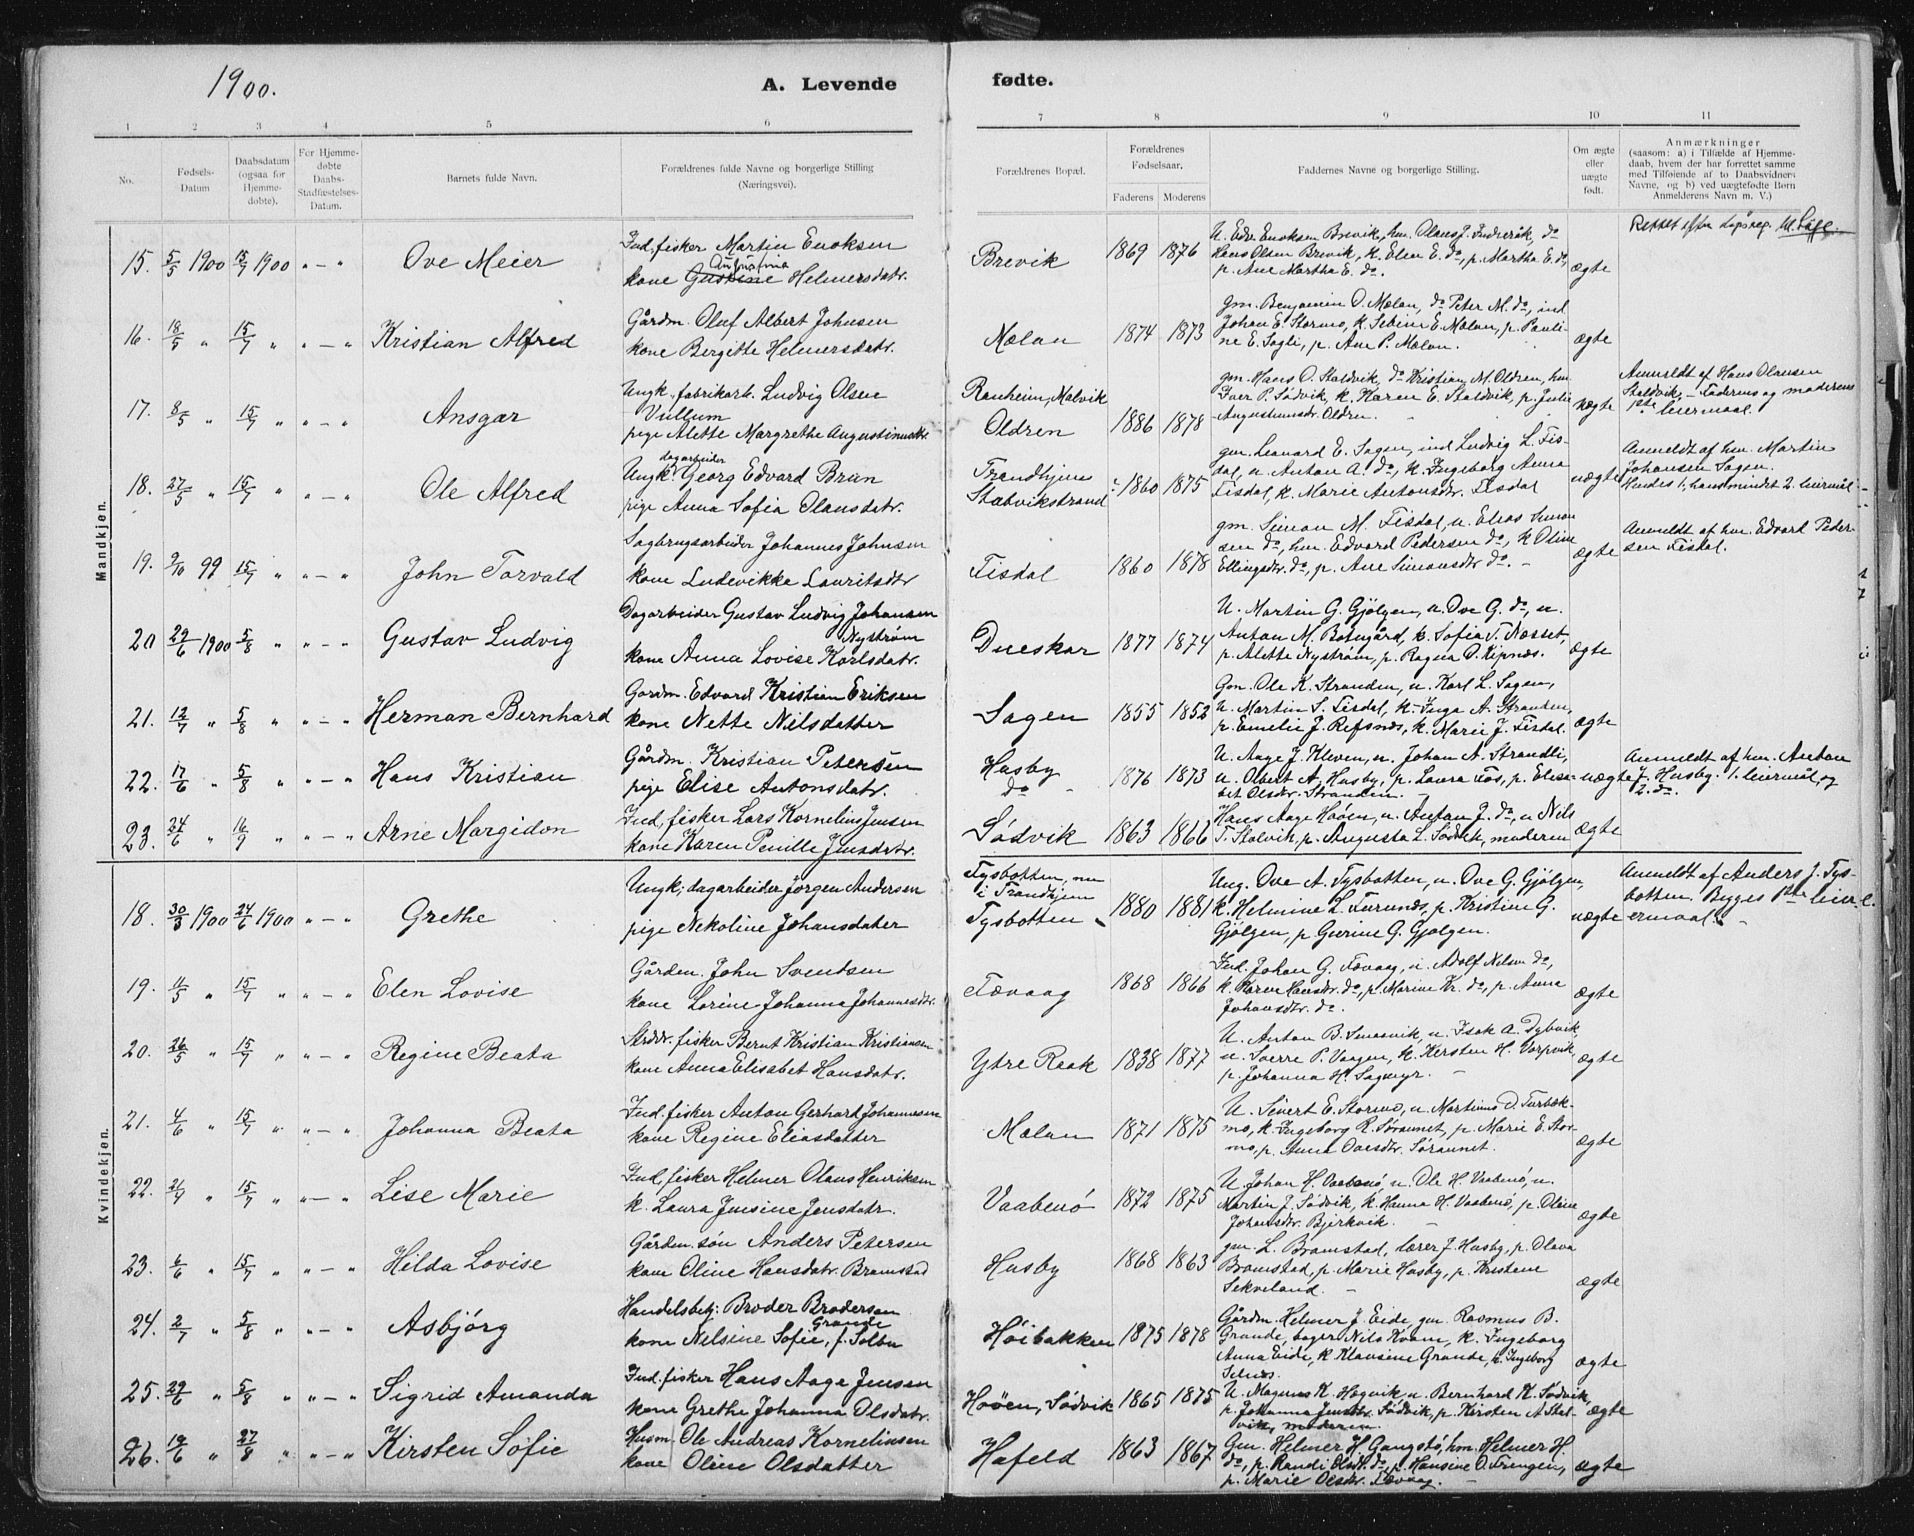 1900.
A. Levende fødte.
1 2 3 4 5 6 7 8 9 10 11
No.
Fødsels-Datum
Daabsdatum (ogsaa for Hjemmedøbte).
For Hjemmedøbte Daabs-Stadfæstelses-Datum.
Barnets fulde Navn.
Forældrenes fulde Navne og borgerlige Stilling (Næringsvei).
Forældrenes Bopæl.
Forældrenes Fødselsaar.
Faderens Moderens
Faddernes Navne og borgerlige Stilling.
Om ægte eller uægte født.
Anmærkninger
(saasom: a) i Tilfælde af Hjemmedaab, hvem der har forrettet samme med Tilføiende af to Daabsvidners Navne, og b) ved uægtefødte Børn Anmelderens Navn m. V.)
Mandkjøn.
15. 5/5 1900 15/7 1900 " — " Ove Meier
Ind. fisker Martin Enoksen
kone Gustine Augustina Helmersdatr.
Brevik 1869 1876
U. Edv. Enoksen Brevik, hm. Olaus J. do
Hans Olsen Brevik, k. Elen E. do, p. Martha E. do,
p. Ane Martha E. do.
ægte
16. 18/5 " 15/7 " " — " Kristian Alfred
Gårdm. Oluf Albert Johnsen
kone Bergitte Helmersdatr.
Mælan 1874 1873
gm. Benjamin O. Mælan, do Peter M. do, ind
Johan E. Stormo, k. Sebine E. Mælan, p. Pauline E. Sogli, p. Ane P. Mælan.
ægte
17. 8/5 " 15/7 " " — " Ansgar
Ungk. fabrikarb. Ludvig Olsen
Vullum
pige Alette Margrethe Augustinusdtr
Ranheim, Malvik
Oldren 1886 1878
gm. Hans O. Staldvik, do Kristian M. Oldren, hm.
Iver P. Sødvik, k. Karen E. Staldvik, p. Julie
Augustinusdr. Oldren.
uægte
Anmeldt af Hans Olausen
Staldvik, — Faderens og moderens
1ste leiermaal.
18. 27/5 " 15/7 " " — " Ole Alfred
Ungk. dagarbeider Georg Edvard Brun
pige Anna Sofia Olausdatr.
Trondhjem
Stabvikstrand 1860 1875
gm. Leonard E. Sagen, ind Ludvig L. Fisdal, u. Anton A. do, k. Ingeborg Anna
Fisdal, k. Marie Antonsdtr. Fisdal
uægte
Anmeldt af hm. Martin
Johansen Sagen.
Hendes 1, hans mindst 2. leiermål
19. 9/10 99 15/7 " " — " John Torvald
Sagbrugsarbeider Johannes Johnsen
kone Ludevikke Lauritsdtr
Fisdal 1860 1878
gm. Simon M. Fisdal, u. Elias Simonsen do, hm. Edvard Pedersen do, k Oline
Ellingsdtr. do, p. Ane Simonsdtr do. —
ægte
Anmeldt af hm. Edvard Pedersen Fisdal.
20 29/6 1900 5/8 " " — " Gustav Ludvig
Dagarbeider Gustav Ludvig Johansen
Nystrøm
kone Anna Lovise Karlsdatr.
Dueskar 1877 1874
U. Martin G. Gjølgen, u. Ove G. do, u.
Anton M. Botngård, k. Sofia T. Næsset,
p. Alette Nystrøm, p. Ragna O. Kipnæs.
ægte
21. 12/7 " 5/8 " " — " Herman Bernhard
Gårdm. Edvard Kristian Eriksen
kone Nette Nilsdatter
Sagen 1855 1852
Gm. Ole K. Stranden, u. Karl L. Sagen,
u. Martin S. Fisdal, k. Inga A. Stranden,
p. Emelie J. Refsnæs, k. Marie J. Fisdal.
ægte
22. 17/6 " 5/8 " " — " Hans Kristian
Gårdm. Kristian Petersen
pige Elise Antonsdatr.
Husby
do 1876 1873
U. Aage J. Kleven, u. Johan A. Strandli,
u. Olbert A. Husby, p. Laura Fos, p. Elisabet Olsdtr. Stranden. —
uægte
Anmeldt af hm. Anton
J. Husby. 1. leiermål og
2. do.
23. 24/6 " 16/9 " " — " Arne Margidon
Ind. fisker Lars Kornelius Jensen
kone Karen Pernille Jensdatr.
Sødvik 1863 1866
Hans Aage Høøen, u. Anton J. do, u Nils
T. Stalvik, p. Augusta L. Sødvik, moderen
ægte
Kvindekjøn.
18. 30/3 1900 24/6 1900 " — " Grethe
Ungk. dagarbeider Jørgen Andersen
pige Nekoline Johansdater
Tysbotten, nu
i Trondhjem
Tysbotten 1880 1881
Ung. Ove A. Tysbotten, u. Ove G. Gjølgen,
k. Helmine L Furunes, p. Kristine G.
Gjølgen, p Gurine G. Gjølgen.
uægte
Anmeldt af Anders J. Tysbotten. Begges 1ste leiermaal. —
19. 11/5 " 15/7 " " — " Elen Lovise
Gårdm. John Svendsen
kone Lorine Johanna Johannesdtr.
Fævaag 1868 1866
Ind. Johan G. Fævaag, u. Adolf Nilsen do,
k. Karen Hansdtr. do, p. Marine Kr. do, p. Anna
Johansdtr. do.
ægte
20. 26/5 " 15/7 " " — " Regine Beata
Strdsr. fisker Bernt Kristian Kristiansen
kone Anna Elisabet Hansdatr.
Ytre Raak 1838 1877
U. Anton B. Smasvik, u. Isak A. Dybvik
u. Sverre P. Vaagen, k. Kersten H. Vorpvik,
p. Johanna H. Sagmyr. —
ægte
21. 4/6 " 15/7 " " — " Johanna Beata
Ind. fisker Anton Gerhard Johannesen
kone Regine Eliasdatter
Mælan 1871 1875
U. Sivert E. Stormo, u. Martinus D. Turbækmo, k. Ingeborg R. Søraunet, p. Marie E. Stormo, p. Anna Ovesdtr Søraunet.
ægte
22. 21/4 " 15/7 " " — " Lise Marie
Ind. fisker Helmer Olaus Henriksen
k. Laura Jensine Jensdatr.
Vaabenø 1872 1875
U. Johan H. Vaabenø, u. Ole H. Vaabenø, u.
Martin J. Sødvik, k. Hanna H. Vaabenø, p. Oline
Johansdtr. Bjerkvik. —
ægte
23. 6/6 " 15/7 " " — " Hilda Lovise
Gårdm. søn Anders Petersen
kone Oline Hansdatr. Bromstad
Husby 1868 1863
gm. L. Bromstad, lærer J. Husby, p. Olava
Bromstad, p. Marie Husby, p. Kristene
Sekveland. —
ægte
24. 2/7 " 5/8 " " — " Asbjørg
Handelsbetj. Broder Brodersen
Grande
kone Nilsine Sofie, f. Solbu
Høibakken 1875 1878
Gårdm. Helmer J. Eide, gm. Rasmus B.
Grande, bager Nils Kvam, k. Ingeborg
Anna Eide, k Klausine Grande, k. Ingeborg
Selnes.
ægte
25. 29/6 " 5/8 " " — " Sigrid Amanda
Ind. fisker Hans Aage Jensen
kone Grethe Johanna Olsdatr.
Høøen, Sødvik 1865 1875
U. Magnus K. Høgvik, u. Bernhard K. Sødvik,
p. Johanna Jensdtr. Sødvik, p. Kirsten A Stalvik, moderen
ægte
26. 19/6 " 27/8 " " — " Kirsten Sofie
Husm. Ole Andreas Kornelinsen
kone Oline Olsdatter
Hafeld 1863 1867
Gm. Helmer H Gangstø, hm. Helmer H.
do, p. Randi Olsdtr. do, p. Hansine O. Frengen,
p. Marie Olsdtr. Fævaag.
ægte